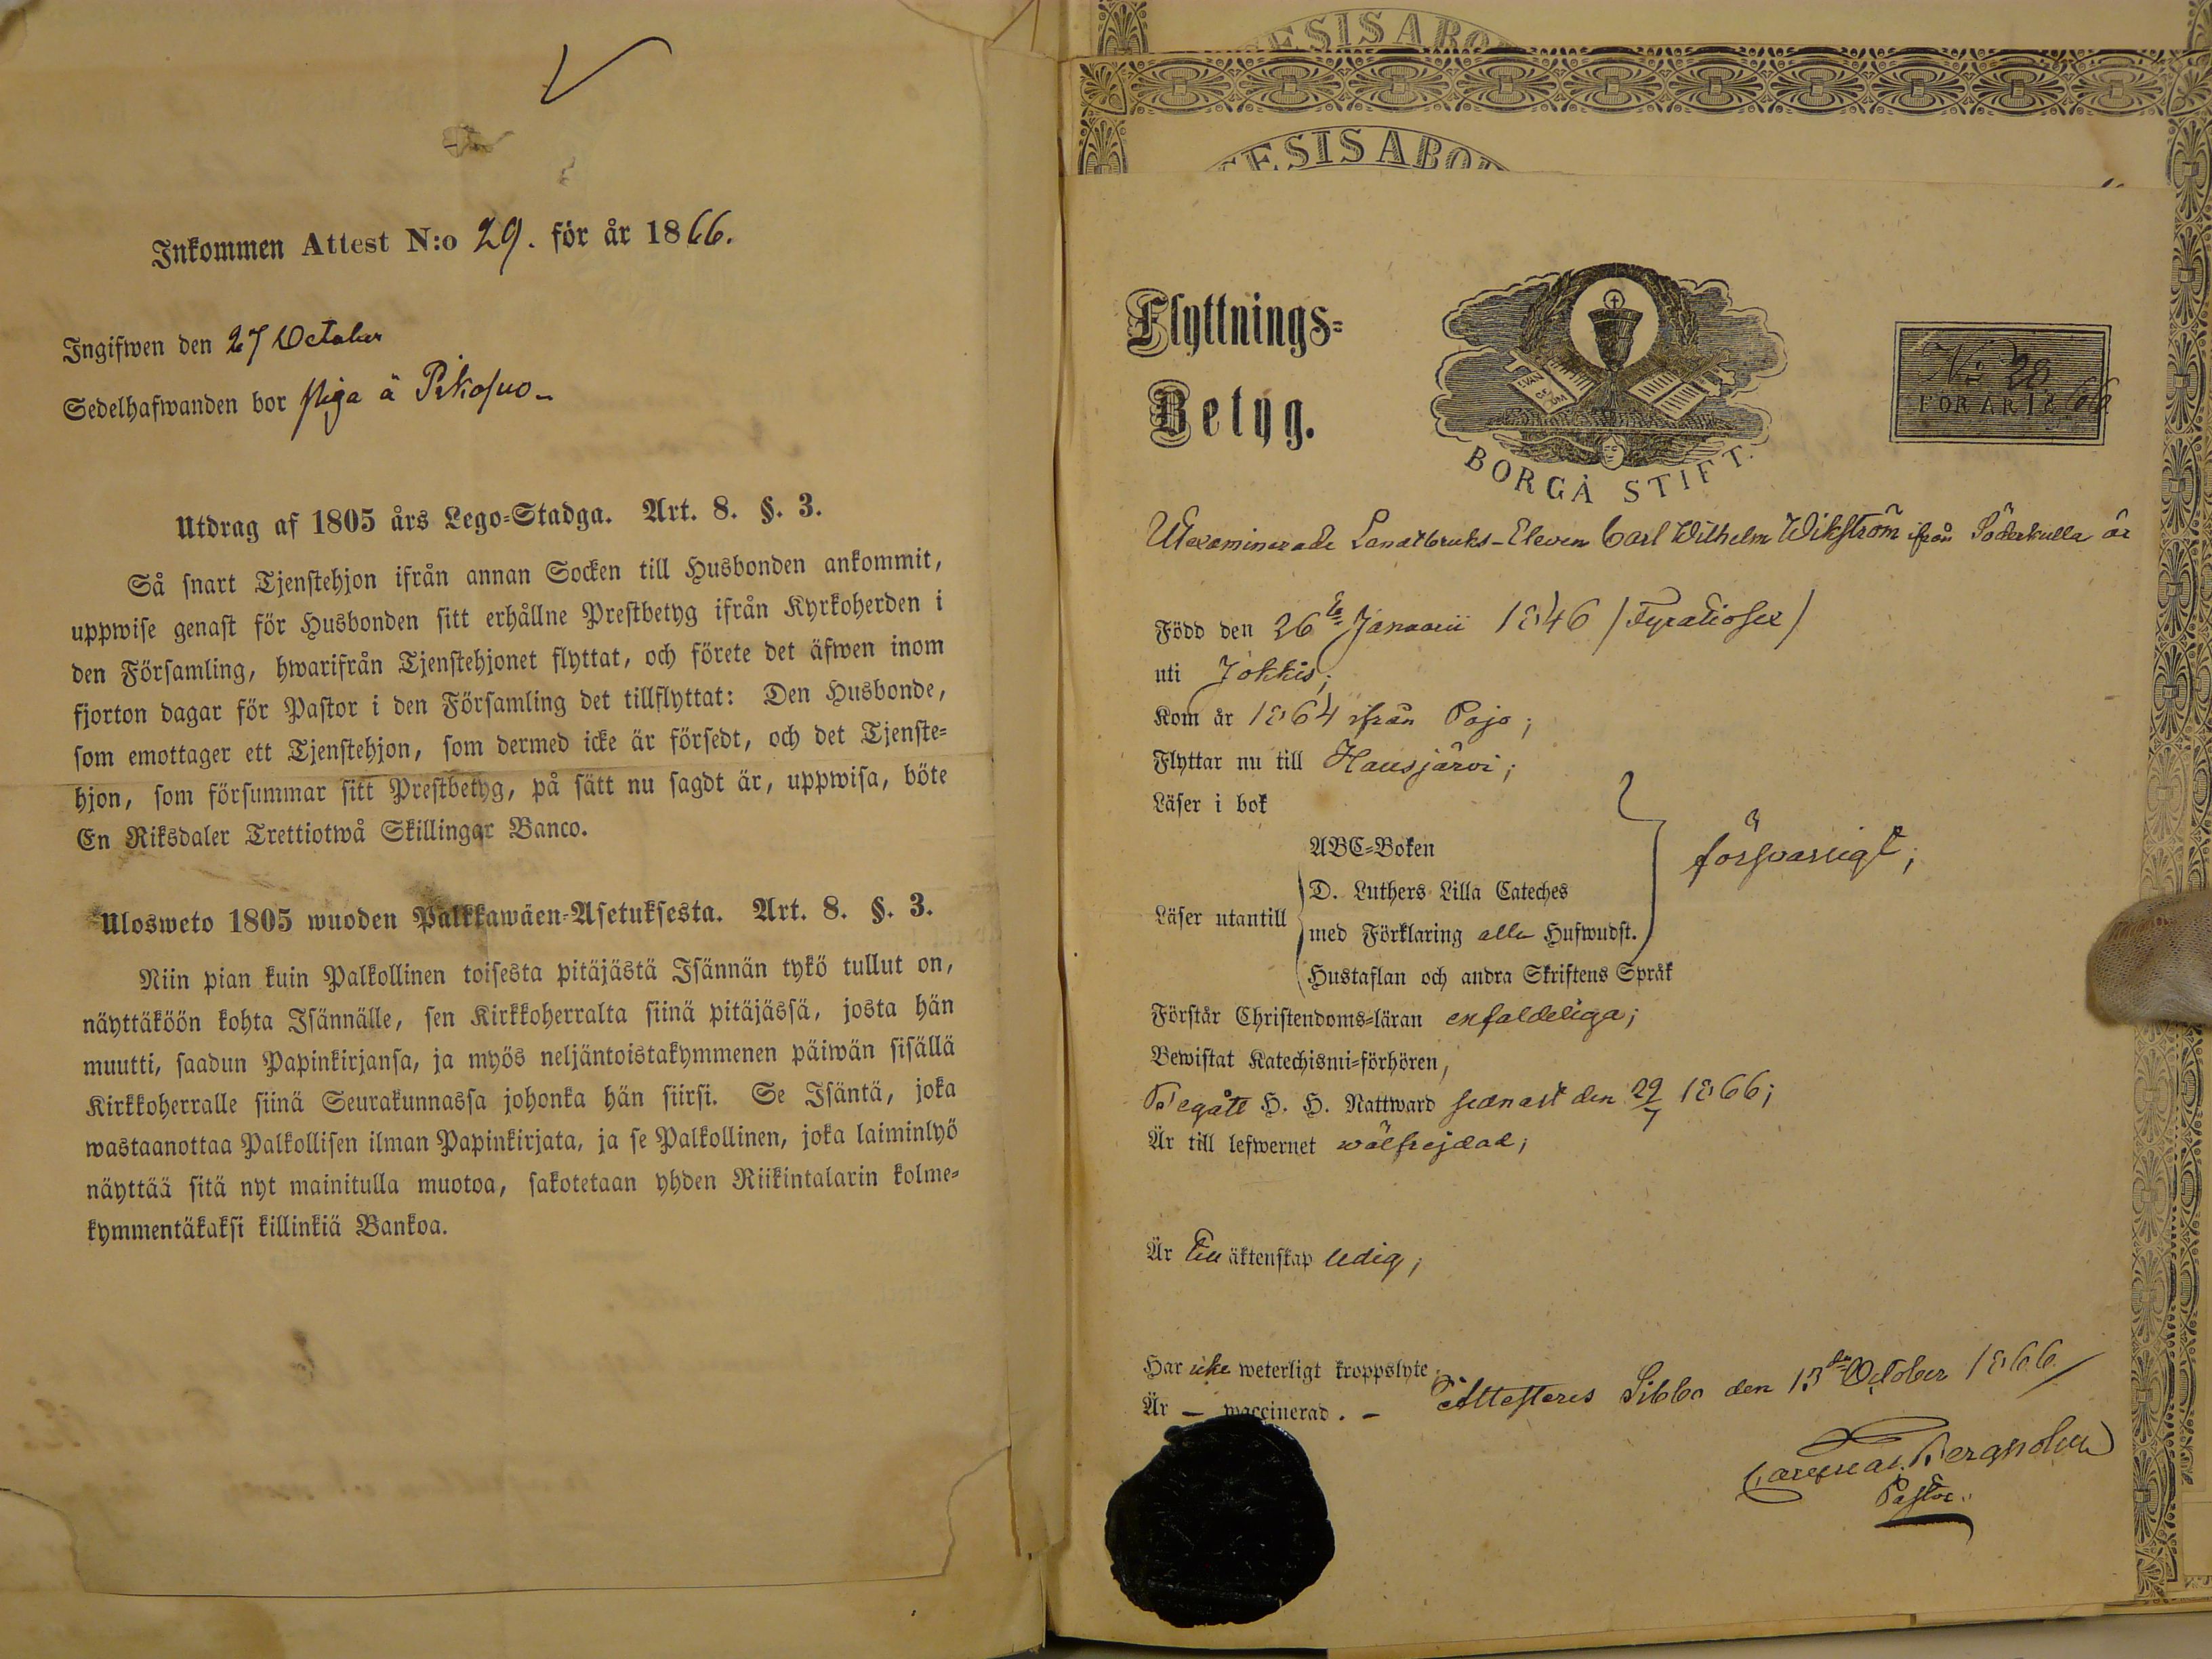 Inkommen Attest N:o 29. för år 1866.
Ingifwen den 27 October
Sedelhafwanden bor piga å
Utdrag af 1805 års Lego-Stadga. Art. 8. §. 3.
Så snart Tjenstehjon ifrån annan Socken till Husbonden ankommit,
uppwise genast för Husbonden sitt erhållne Prestbetyg ifrån Kyrkoherden i
den Församling, hwarifrån Tjenstehjonet flyttat, och förete det äfwen inom
fjorton dagar för Pastor i den Församling det tillflyttat: Den Husbonde,
som emottager ett Tjenstehjon, som dermed icke är försedt, och det Tjenste-
hjon, som försummar sitt Prestbetyg, på sätt nu sagdt är, uppwisa, böte
En Riksdaler Trettiotwå Skillingar Banco.
Ulosweto 1805 wuoden Palkkawäen-Asetuksesta. Art. 8. §. 3.
Niin pian kuin Palkollinen toisesta pitäjästä Isännän tykö tullut on,
näyttäköön kohta Isännälle, sen Kirkkoherralta siinä pitäjässä, josta hän
muutti, saadun Papinkirjansa, ja myös neljäntoistakymmenen päiwän sisällä
Kirkkoherralle siinä Seurakunnassa johonka hän siirsi. Se Isäntä, joka
wastaanottaa Palkollisen ilman Papinkirjata, ja se Palkollinen, joka laiminlyö
näyttää sitä nyt mainitulla muotoa, sakotetaan yhden Riikintalarin kolme-
kymmentäkaksi killinkiä Bankoa.
ESIS ABO
ESIS ABO
Flyttnings-
Betyg.
EVAN
GE
LIUM
BORGÅ STIFT.
No 20
FÖR ÅR 1866
Utexaminerade Landtbruks-Eleven Carl Wilhelm Wikström ifrån Söderkulla är
Född den 26te Januarii 1846 /Fyratiosex/
uti Jokkis;
Kom år 1864 ifrån Pojo;
Flyttar nu till Hausjärvi;
Läser i bok
ABC-Boken
D. Luthers Lilla Cateches
Läser utantill
med Förklaring alla Hufwudst.
försvarligt;
Hustaflan och andra Skriftens Språk
Förstår Christendoms-läran enfaldeliga;
Bewistat Katechismi-förhören,
Begått H. H. Nattward sednast den 29/7 1866;
Är till lefwernet wälfrejdad;
Är till äktenskap ledig;
Har icke weterligt kroppslyte;
Är — waccinerad. —
Attesteras Sibbo den 13de October 1866
Bergholm
Pastor.